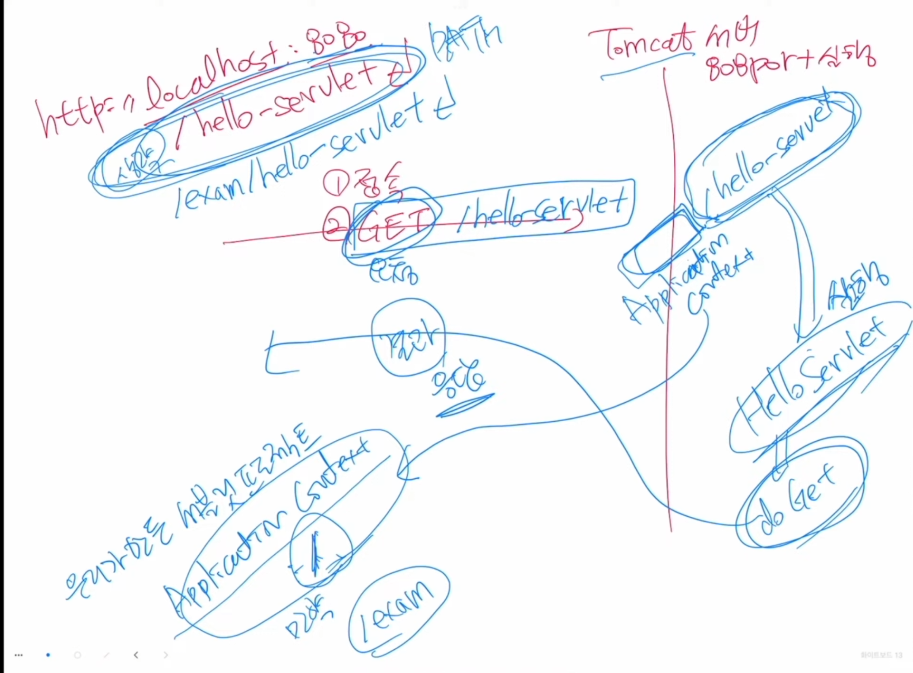 http://localhost:8080
/hello-servlet
PATH
/exam/hello-servlet
① 접속
② GET /hello-servlet
요청
결과
응답
Tomcat 서버
808port 실행
/hello-servlet
Application
Context
실행
HelloServlet
doGet
우리가 만든 서블릿 프로젝트
Application Context
/
/exam
화이트보드 13